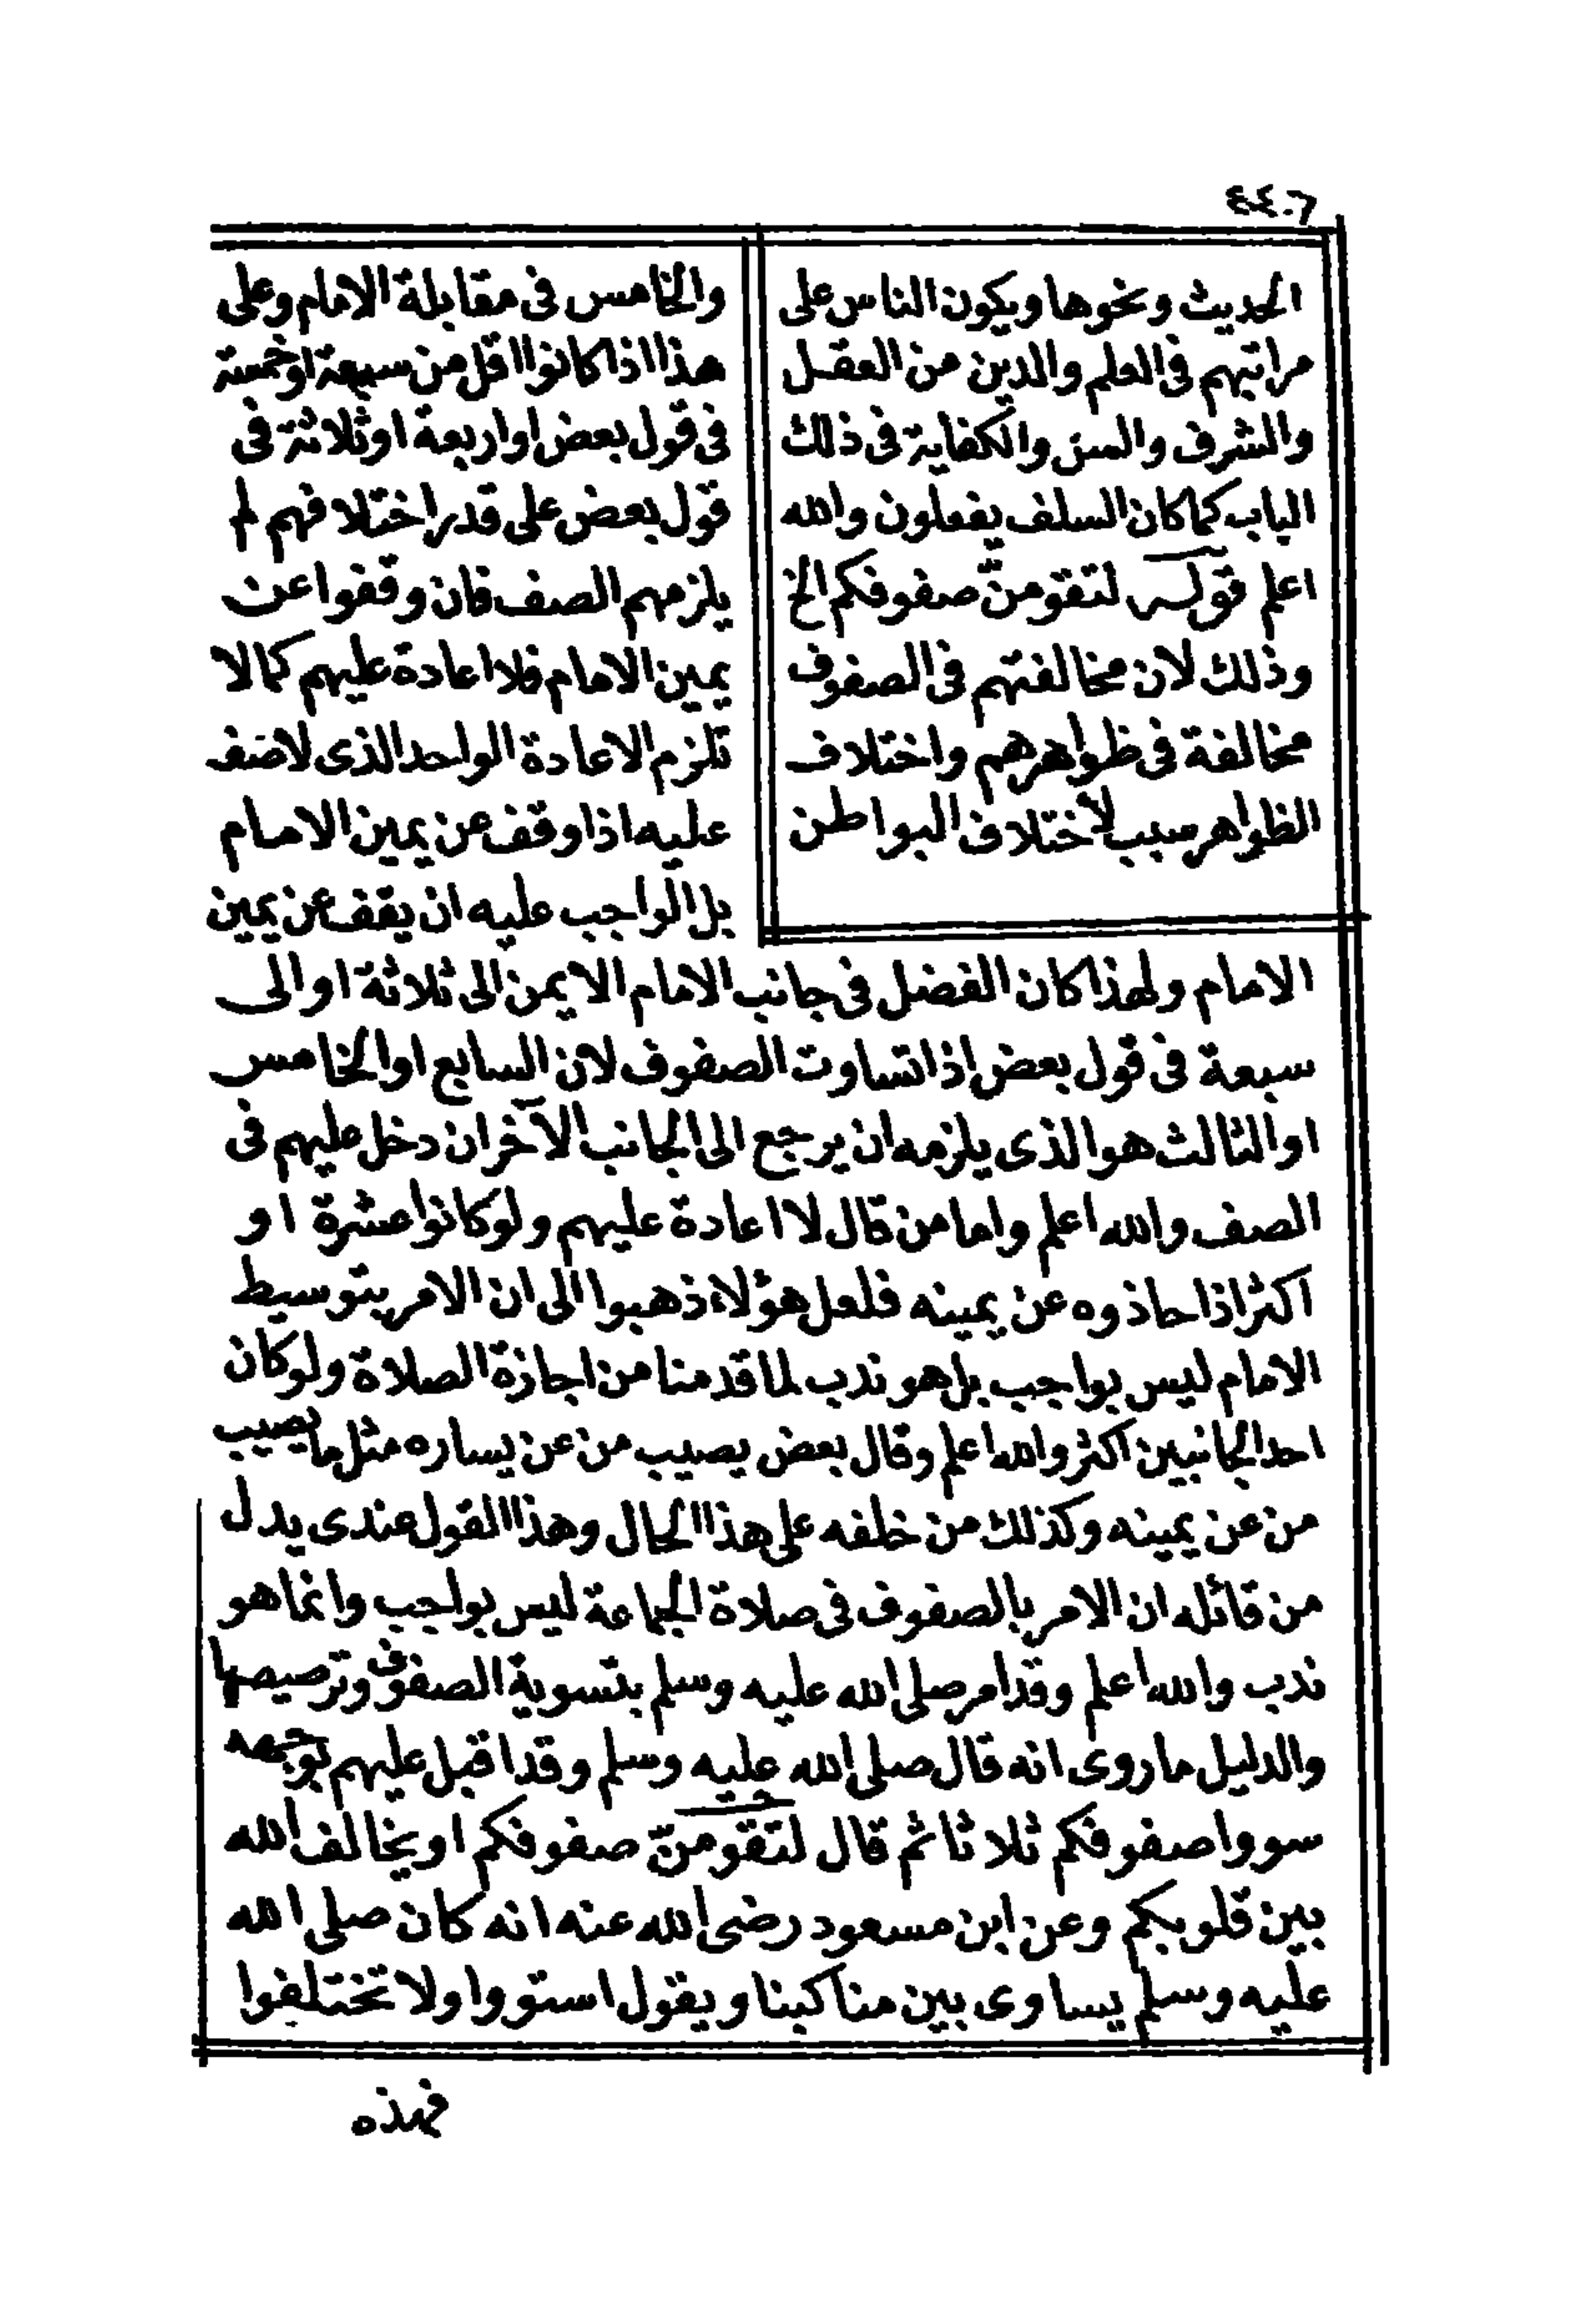 ٤٤٠٦
الحديث ونحوها ويكون الناس على
مراتبهم فى العلم والدين من العقل
والشرف والسن والكفاية فى ذلك
الباب كما كان السلف يفعلون والله
اعلم قوله لتقومنّ صفوفكم الخ
وذلك لان مخالفتهم فى الصفوف
مخالفة فى ظواهرهم واختلاف
الظواهر سبب لاختلاف البواطن
والخامس فى مقابلة الامام وعلى
هذا اذا كانوا اقل من سبعة او خمسة
فى قول بعض او اربعة او ثلاثة فى
قول بعض على قدر اختلافهم لم
يلزمهم الصف فان وقفوا عن
يمين الامام فلا اعادة عليهم كما لا
تلزم الاعادة الواحد الذى لا صف
عليه اذا وقف عن يمين الامام
بل الواجب عليه ان يقف عن يمين
الامام ولهذا كان الفضل فى جانب الامام الايمن الى ثلاثة او الى
سبعة فى قول بعض اذا تساوت الصفوف لان السابع او الخامس
او الثالث هو الذى يلزمه ان يرجع الى الجانب الآخر ان دخل عليهم فى
الصف والله اعلم واما من قال لا اعادة عليهم ولو كانوا عشرة او
اكثر اذا حاذوه عن يمينه فلعل هؤلاء ذهبوا الى ان الامر بتوسيط
الامام ليس بواجب بل هو ندب لما قدمنا من اجازة الصلاة ولو كان
احد الجانبين اكثر والله اعلم وقال بعض يصيب من عن يساره مثل ما يصيب
من عن يمينه وكذلك من خلفه على هذا الحال وهذا القول عندى يدل
من قائله ان الامر بالصفوف فى صلاة الجماعة ليس بواجب وانما هو
ندب والله اعلم وقد امر صلى الله عليه وسلم بتسوية الصفوف وترصيصها
والدليل ما روى انه قال صلى الله عليه وسلم وقد اقبل عليهم بوجهه
سووا صفوفكم ثلاثا ثم قال لتقومنّ صفوفكم او يخالف الله
بين قلوبكم وعن ابن مسعود رضى الله عنه انه كان صلى الله
عليه وسلم يساوى بين مناكبنا ويقول استووا ولا تختلفوا
فهذه